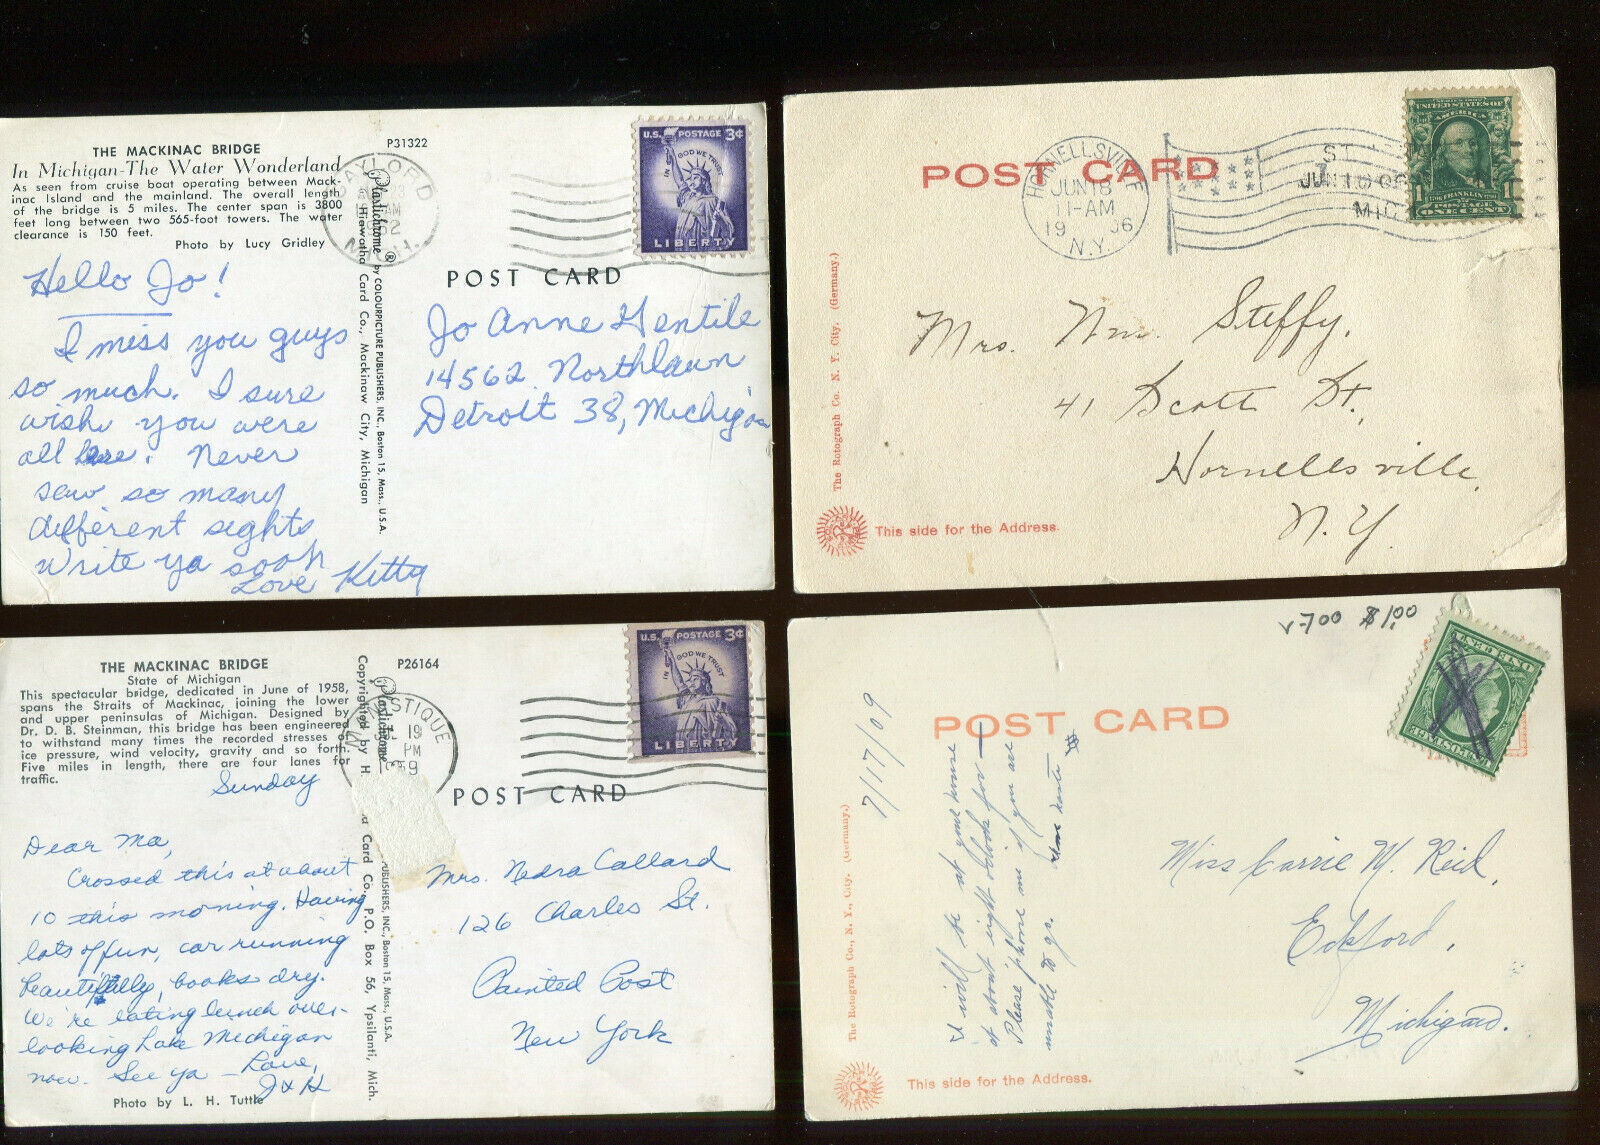 THE MACKINAC BRIDGE
In Michigan-The Water Wonderland
As seen from cruise boat operating between Mack-
inac Island and the mainland. The overall length
of the bridge is 5 miles. The center span is 3800
feet long between two 565-foot towers. The water
clearance is 150 feet.
Photo by Lucy Gridley
P31322
GAYLORD
AM
MICH.
U.S. POSTAGE 3¢
IN GOD WE TRUST
LIBERTY
POST CARD
Plastichrome ® by COLOURPICTURE PUBLISHERS, INC., Boston 15, Mass., U.S.A.
Hiawatha Card Co., Mackinaw City, Michigan
Hello Jo!
I miss you guys
so much. I sure
wish you were
all here. Never
sew so many
different sights
Write ya soon
Love Kitty
Jo Anne Gentile
14562 Northlawn
Detroit 38, Michigan
POST CARD
HORNELLSVILLE
JUN 18
11-AM
19 06
N.Y.
ST
JUN 1 06
MIC
UNITED STATES OF
AMERICA
FRANKLIN
POSTAGE
ONE CENT
Mrs. Wm. Steffy.
41 Scott St.
Hornellsville,
N.Y.
The Rotograph Co. N. Y. City. (Germany.)
This side for the Address.
THE MACKINAC BRIDGE
State of Michigan
This spectacular bridge, dedicated in June of 1958,
spans the Straits of Mackinac, joining the lower
and upper peninsulas of Michigan. Designed by
Dr. D. B. Steinman, this bridge has been engineered
to withstand many times the recorded stresses of
ice pressure, wind velocity, gravity and so forth.
Five miles in length, there are four lanes for
traffic.
P26164
MANISTIQUE
19
PM
U.S. POSTAGE 3¢
IN GOD WE TRUST
LIBERTY
POST CARD
Copyrighted by H
a Card Co., P.O. Box 56, Ypsilanti, Mich.
Plastichrome
PUBLISHERS, INC., Boston 15, Mass., U.S.A.
Sunday
Dear Ma,
Crossed this at about
10 this morning. Having
lots of fun, car running
beautifully, books dry.
We're eating lunch over-
looking Lake Michigan
now. See ya - Love,
J & H
Photo by L. H. Tuttle
Mrs. Nedra Callard
126 Charles St.
Painted Post
New York
V-700 $1.00
POST CARD
ONE CENT
POSTAGE
7/17/09
I will be at your house
at about eight o'clock for
Please 'phone me if you are
unable to go.
Miss Carrie M. Reid,
Eckford,
Michigan.
The Rotograph Co., N. Y., City. (Germany.)
This side for the Address.